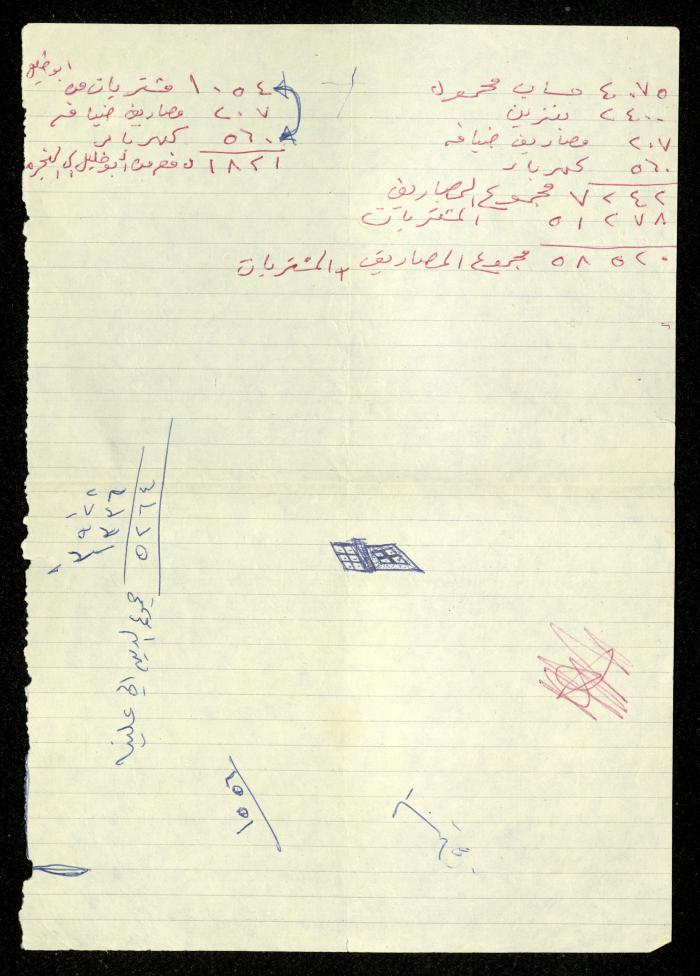 ٤٠٧٥ حساب محمود
٢٤٠٠ بنزين
٢٠٧ مصاريف ضيافه
٥٦٠ كهرباء
٧٢٤٢ مجموع المصاريف
٥١٢٧٨ المشتريات
٥٨٥٢٠ مجموع المصاريف والمشتريات
١٠٥٤ مشتريات من ابو خليل
٢٠٧ مصاريف ضيافه
٥٦٠ كهرباء
١٨٢١ دفع من أبو خليل الى
٥٢٦٤
مجموع الدين الي علينا